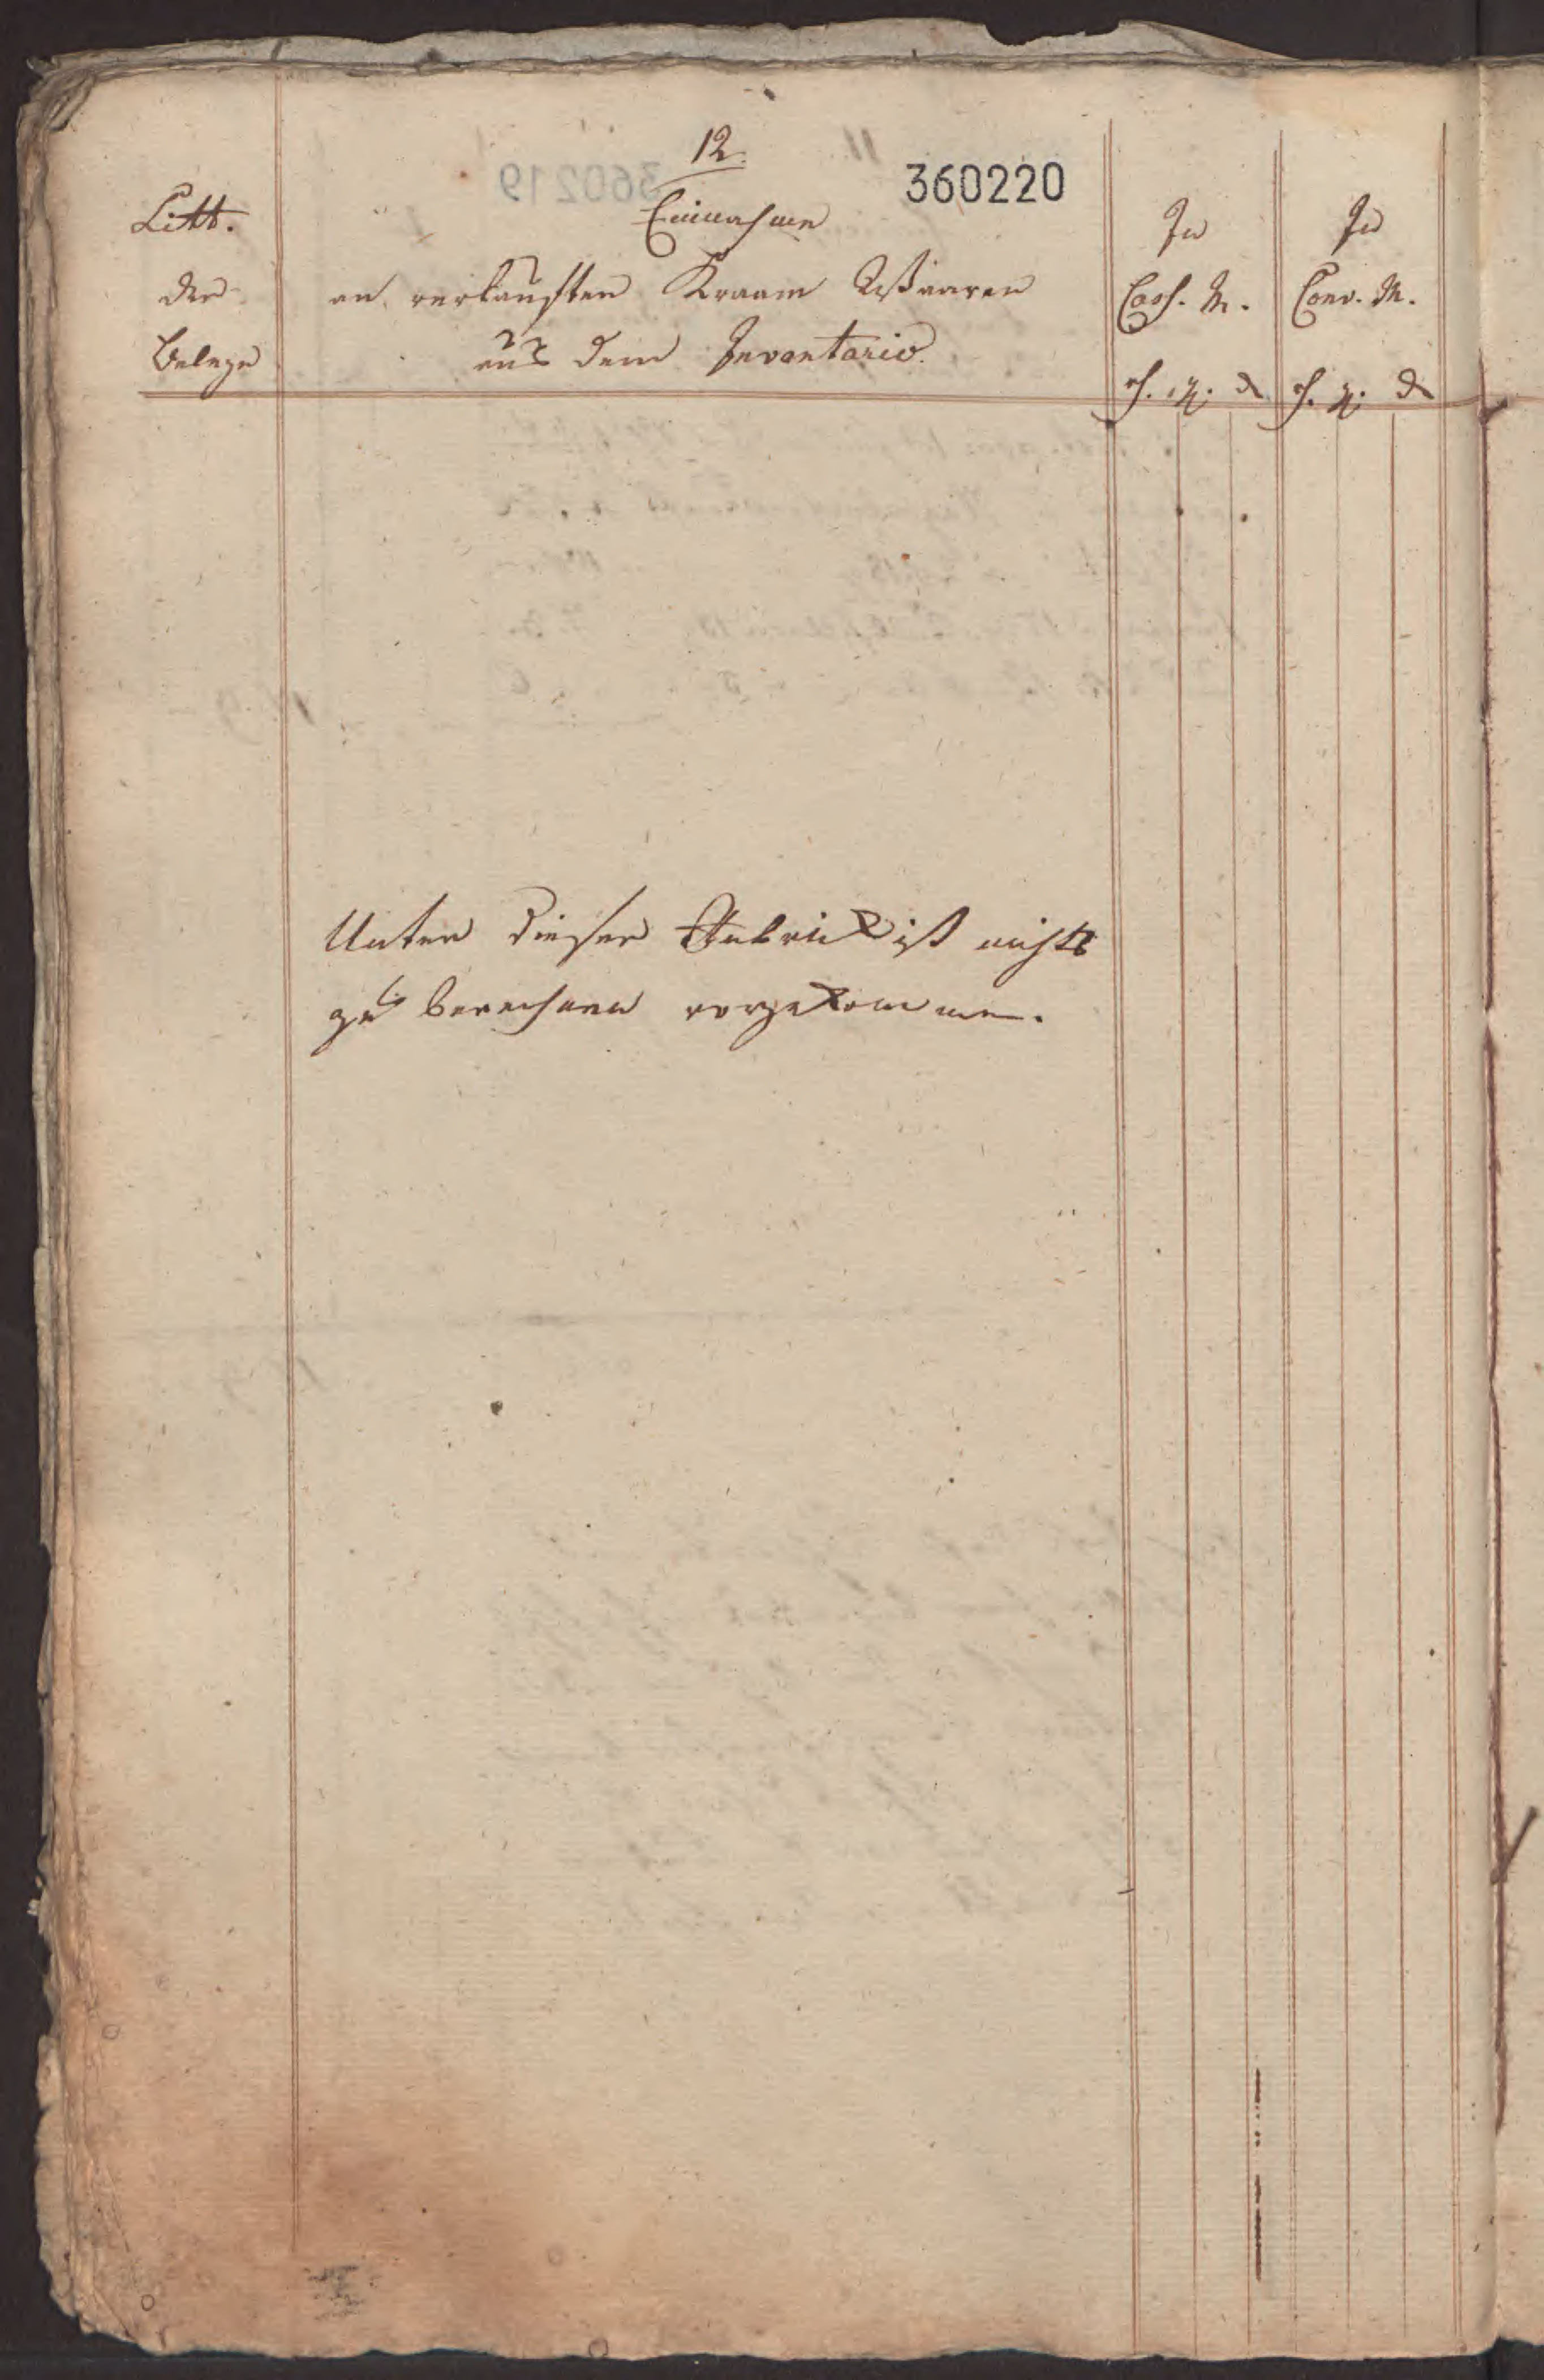 12.
360220
Litt.
der
Belege
Einnahme
an verkauften Kraam Waaren
aus dem Inventario.
In
Cass. M.
In
Conv. M.
Unter dieser Rubrik ist nichts
zu berechnen vorgekommen.